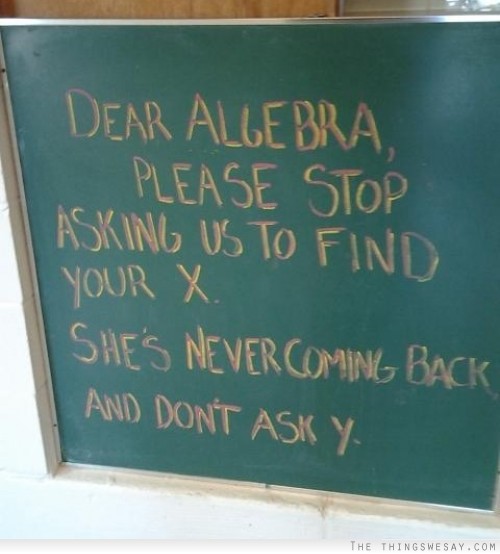 DEAR ALGEBRA,
PLEASE STOP
ASKING US TO FIND
YOUR X.
SHE'S NEVER COMING BACK
AND DON'T ASK Y.
THE THINGSWESAY.COM